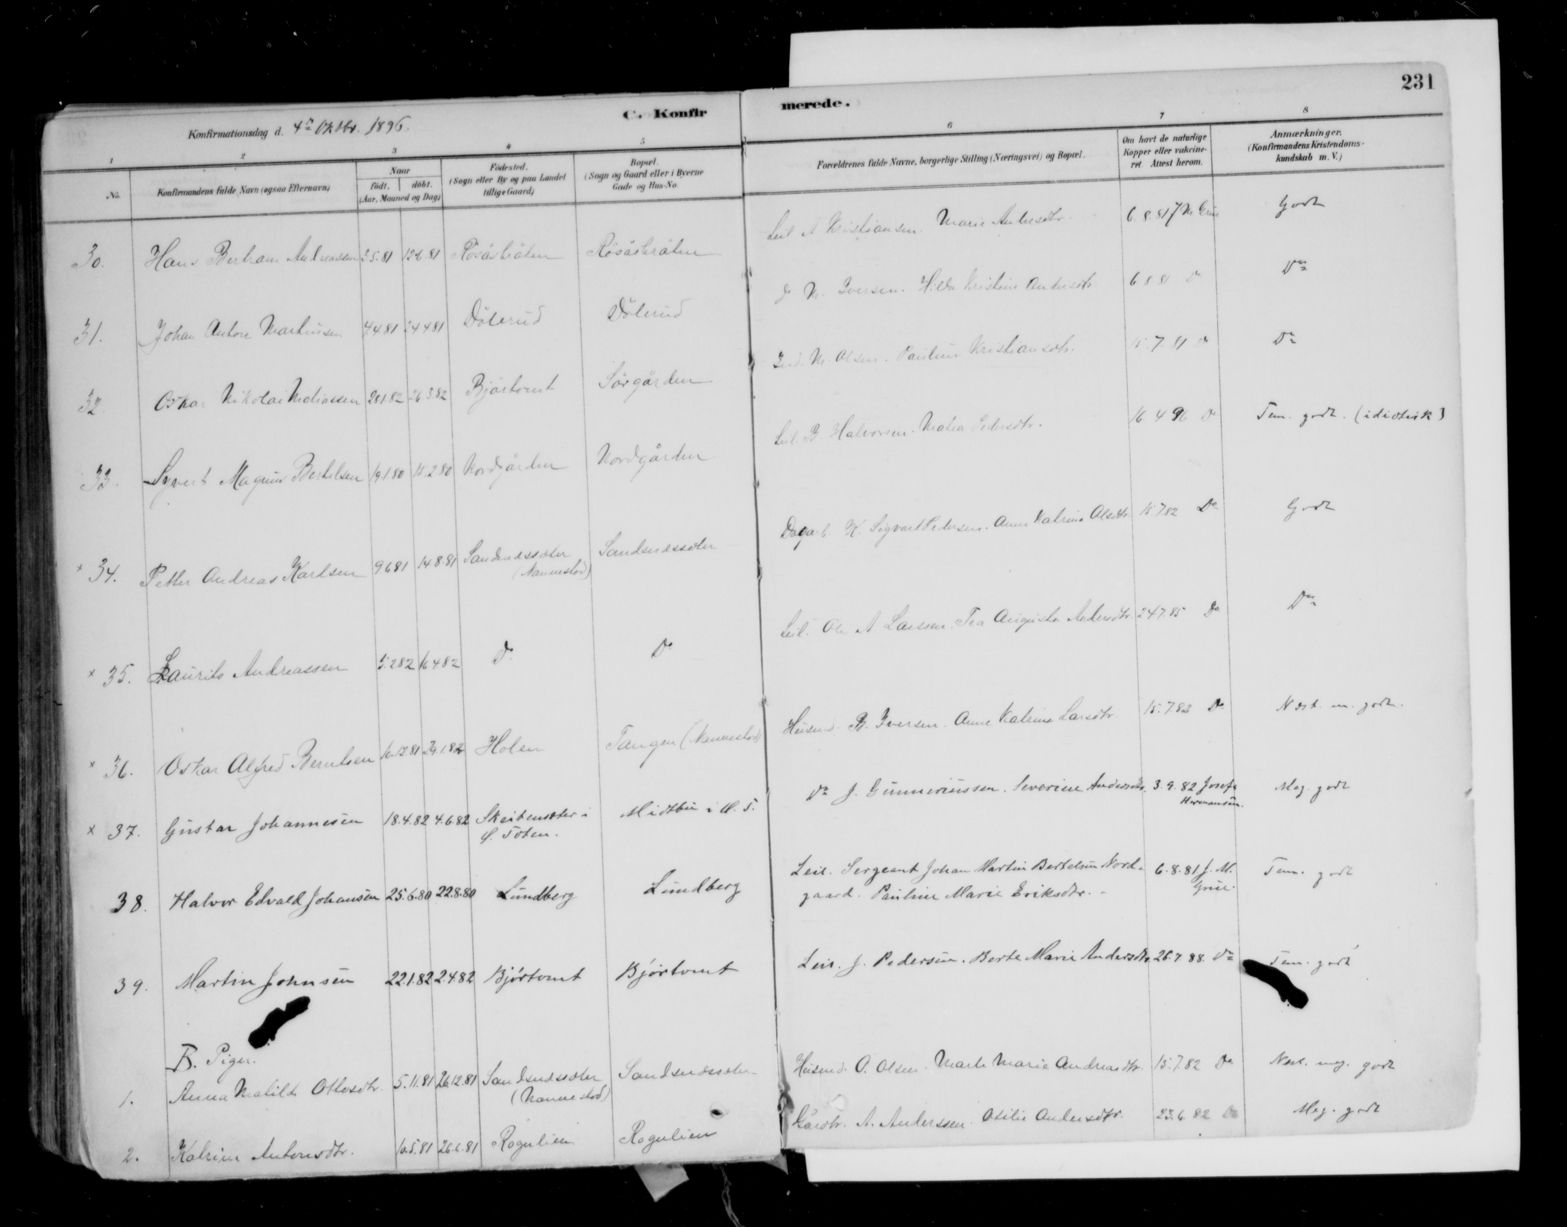 231
C. Konfir merede.
Konfirmationsdag d. 4de Oktbr. 1896.
1 2 3 4 5 6 7 8
No. Konfirmandens fulde Navn (ogsaa Efternavn) Naar født, døbt. (Aar, Maaned og Dag) Fødested. (Sogn eller By og paa Landet tillige Gaard) Bopæl. (Sogn og Gaard eller i Byerne Gade og Hus-No. Forældrenes fulde Navne, borgerlige Stilling (Næringsvei) og Bopæl. Om havt de naturlige Kopper eller vakcineret Attest herom. Anmærkninger. (Konfirmandens Kristendomskundskab m. V.)
30. Hans Andreassen 3.5.81 12.6.81 Røsåsbråten Røsåsbråten Leil. A. Kristiansen. Marie Andersdtr. 6.8.81 Godt
31. Johan Anton Martinsen 4.4.81 24.4.81 Døterud Døterud Do M. Iversen. Hilda Kristine Andersdtr. 6.8.81 Do Do
32. Oskar Nikolai 20.1.82 26.3.82 Bjørtomt Sørgården M. Olsen. Pauline Kristiansdtr. 15.7.81 Do Do
33. Syvert Magnus Bertelsen 19.1.80 15.2.80 Nordgården Nordgården Leil. B. Halvorsen. Pedersdtr. 16.4.96 Do Tem. godt. (idiotisk)
x 34. Petter Andreas Karlsen 9.6.81 14.8.81 Sandsnessæter (Nannestad) Sandsnessæter K. Sigvart Pedersen. Anne Katrine Olsdtr. 15.7.82 Do Godt
x 35. Laurits Andreassen 5.2.82 16.4.82 Do Do Leil. Ole A. Larssen. Tea Augusta Andersdtr. 24.7.85 Do Do
x 36. Oskar Alfred Berntsen 16.12.81 29.1.82 Holsen Tangen (Nannestad) Husmd. B. Iversen. Anne Katrine Larsdtr. 15.7.82 Do Næst. m. godt.
x 37. Gustav Johannesen 18.4.82 4.6.82 Skeitensæter i Midtbu i Ø. T. Do J. Gunneriussen. Severine Andersdtr. 3.9.82 Josefa Meg. godt
Ø. Toten. Hermansen.
38. Halvor Edvald Johansen 25.6.80 22.8.80 Lundberg Lundberg Leil. Sergeant Johan Martin Bertelsen Nord- 6.8.81 J. M. Tem. godt
gaard. Pauline Marie Eriksdtr. Grue.
39. Martin Johnsen 22.1.82 2.4.82 Bjørtomt Bjørtomt Leil. J. Pedersen. Berte Marie Andersdtr. 26.7.88 Do Tem. godt
B. Piger.
1. Anna Matilde Ottosdtr. 5.11.81 26.12.81 Sandsnessæter (Nannestad) Sandsnessæter Husmd. O. Olsen. Marte Marie Andreasdtr. 15.7.82 Do Næst. meg. godt
2. Katrine Antonsdtr. 10.5.81 26.6.81 Rognlien Rognlien Gårdbr. A. Anderssen. Otilie Andersdtr. 23.6.82 Do Meg. godt